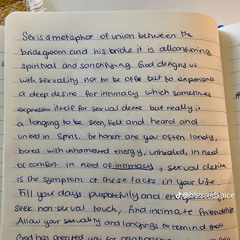 Sex is a metaphor of union between the
bridegroom and his bride it is allconsuming
spiritual and sanctifying. God designs us
with sexuality not to be offie but to experience
a deep desire for intimacy which sometimes
expresses itself for sexual desire but really it is
a longing to be seen, felt and heard and
united in Spirit. be honest are you often lonely,
bored with unharnessed energy, unhealed, in need
of comfort in need of intimacy, sexual desire
is the symptom of these lacks in your life.
Fill your days purposefully and
seek non sexual touch, find intimate friendships
Allow your sexuality and longings to remind you
God has created you for relationship